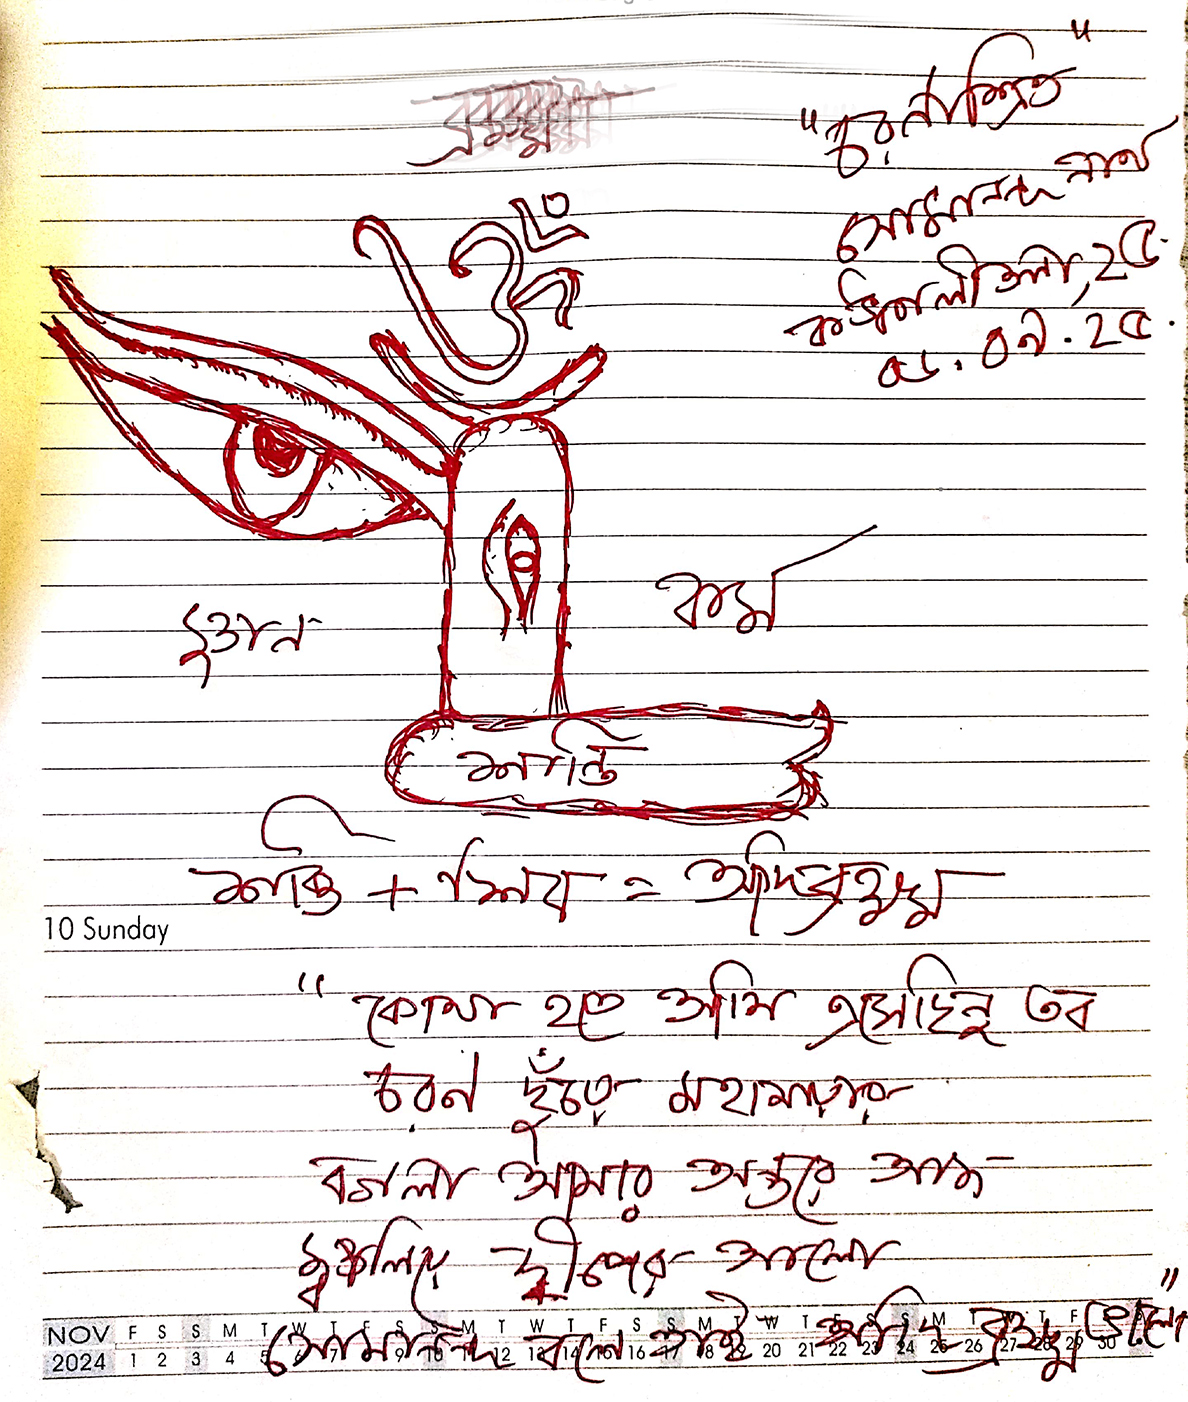 "চরনাশ্রিত"
সোমানন্দ নাথ
কঙ্কালীতলা, ২৫.
০৯.২৫.
জ্ঞান
কর্ম
শান্তি
শক্তি + শিব = আদিব্রহ্ম
10 Sunday
"কোথা হতে আমি এসেছিনু তব
চরন ছুঁতে মহামায়ার
বগলা আমার অন্তরে আজ
জ্বালিয়ে দ্বীপের আলো
সোমানন্দ বলে তাই আদি ব্রহ্ম"
NOV F S S M T W T F S S M T W T F S S M T W T F S S M T W T F S
2024 1 2 3 4 5 6 7 8 9 10 11 12 13 14 15 16 17 18 19 20 21 22 23 24 25 26 27 28 29 30